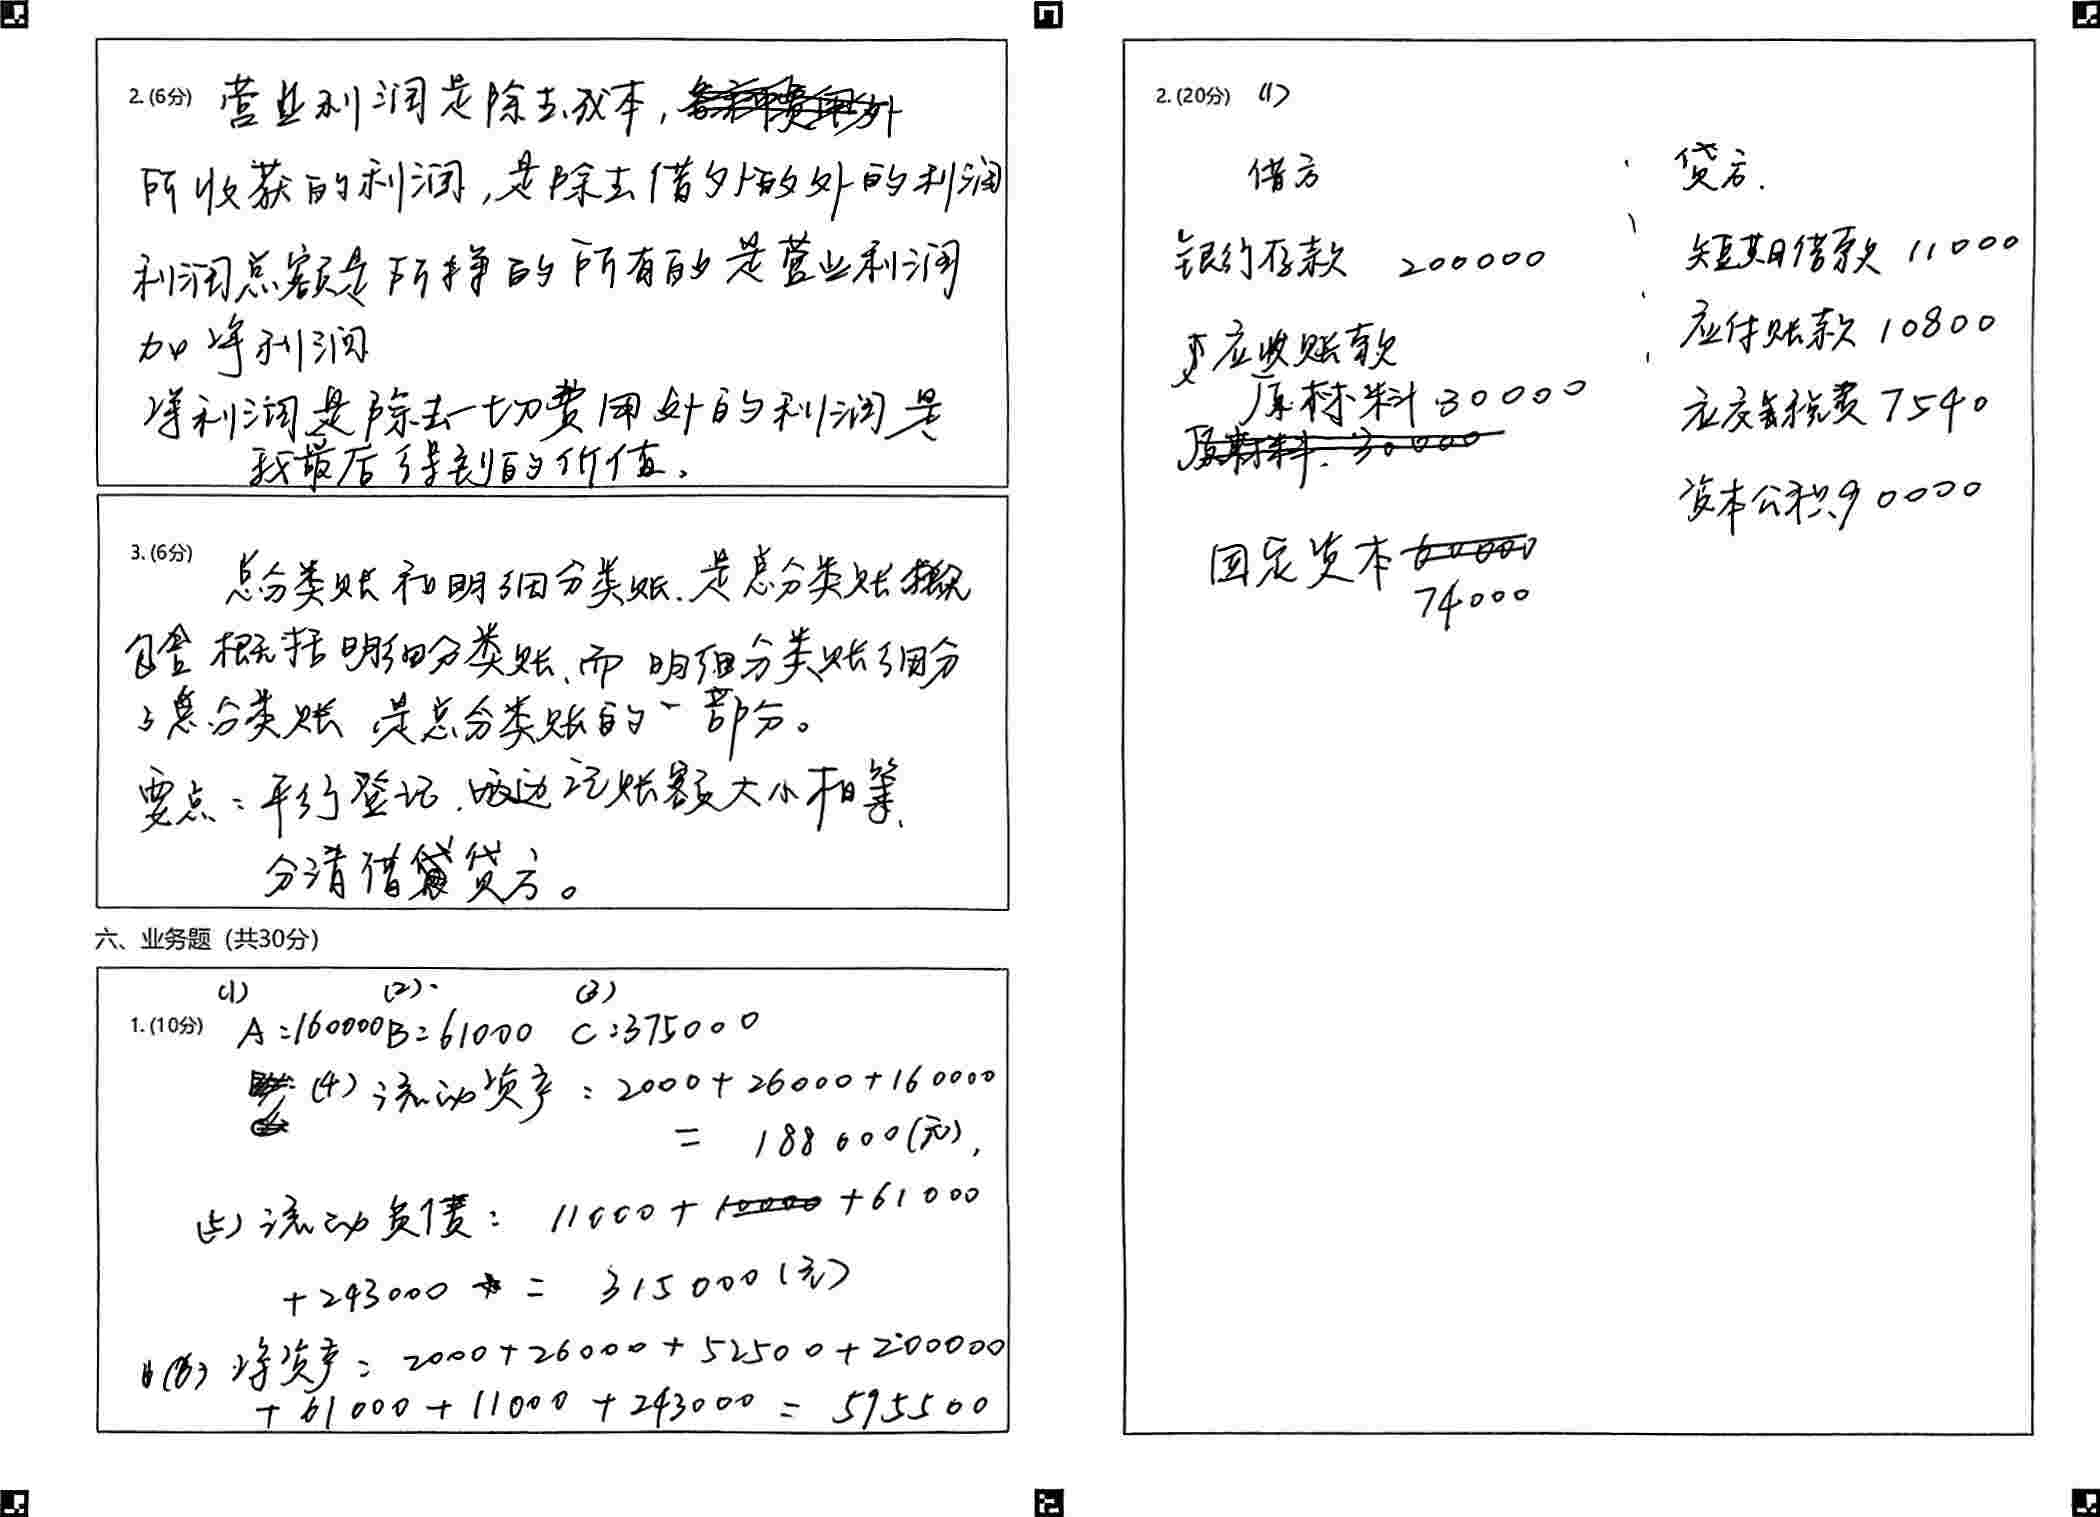 2. (6分) 营业利润是除去成本,
所收获的利润,是除去借外的外的利润
利润总额是所挣的所有的是营业利润
加净利润
净利润是除去一切费用外的利润是
我最后得到的价值。
3. (6分) 总分类账和明细分类账.是总分类账
包含概括明细分类账,而明细分类账细分
了总分类账 是总分类账的一部分。
要点:平行登记.两边记账额大小相等,
分清借贷方。
六、业务题 (共30分)
(1) (2). (3)
1. (10分) A=160000 B=61000 C=375000
(4) 流动资产: 2000+26000+160000
= 188000(元),
(5) 流动负债: 11000+10000+61000
+243000 = 315000(元)
(6) 净资产: 2000+26000+52500+200000
+61000+11000+243000 = 595500
2. (20分) (1)
借方 贷方.
银行存款 200000 短期借款 11000
应收账款 应付账款 10800
原材料 30000 应交税费 7540
原材料. 30000 资本公积 90000
固定资本 60000
74000